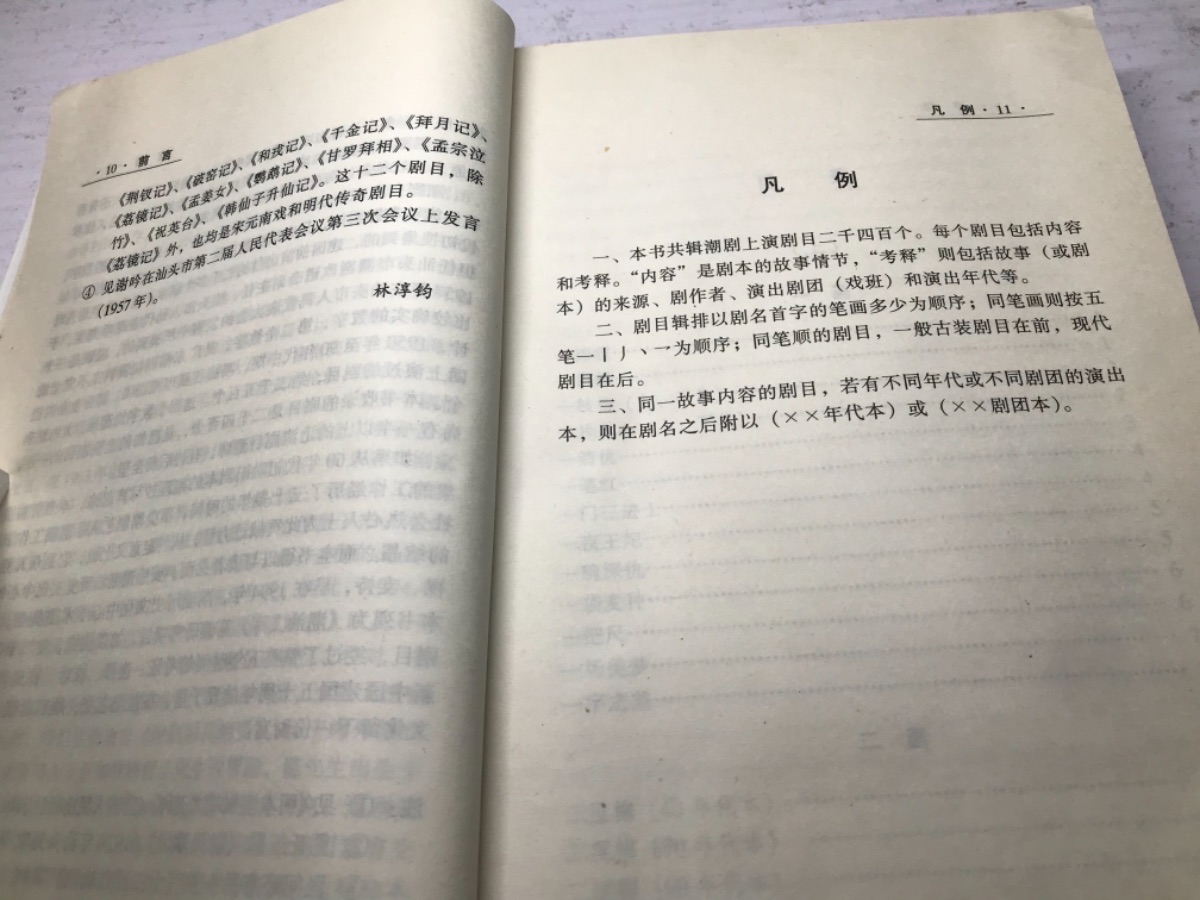 · 10 · 前 言
《荆钗记》、《破窑记》、《和戎记》、《千金记》、《拜月记》、
《荔镜记》、《孟姜女》、《鹦鹉记》、《甘罗拜相》、《孟宗泣
竹》、《祝英台》、《韩仙子升仙记》。这十二个剧目，除
《荔镜记》外，也均是宋元南戏和明代传奇剧目。
④ 见谢吟在汕头市第二届人民代表会议第三次会议上发言
(1957年)。
林淳钧
凡 例 · 11 ·
凡 例
一、本书共辑潮剧上演剧目二千四百个。每个剧目包括内容
和考释。“内容”是剧本的故事情节，“考释”则包括故事（或剧
本）的来源、剧作者、演出剧团（戏班）和演出年代等。
二、剧目辑排以剧名首字的笔画多少为顺序；同笔画则按五
笔一丨丿丶乛为顺序；同笔顺的剧目，一般古装剧目在前，现代
剧目在后。
三、同一故事内容的剧目，若有不同年代或不同剧团的演出
本，则在剧名之后附以（××年代本）或（××剧团本）。